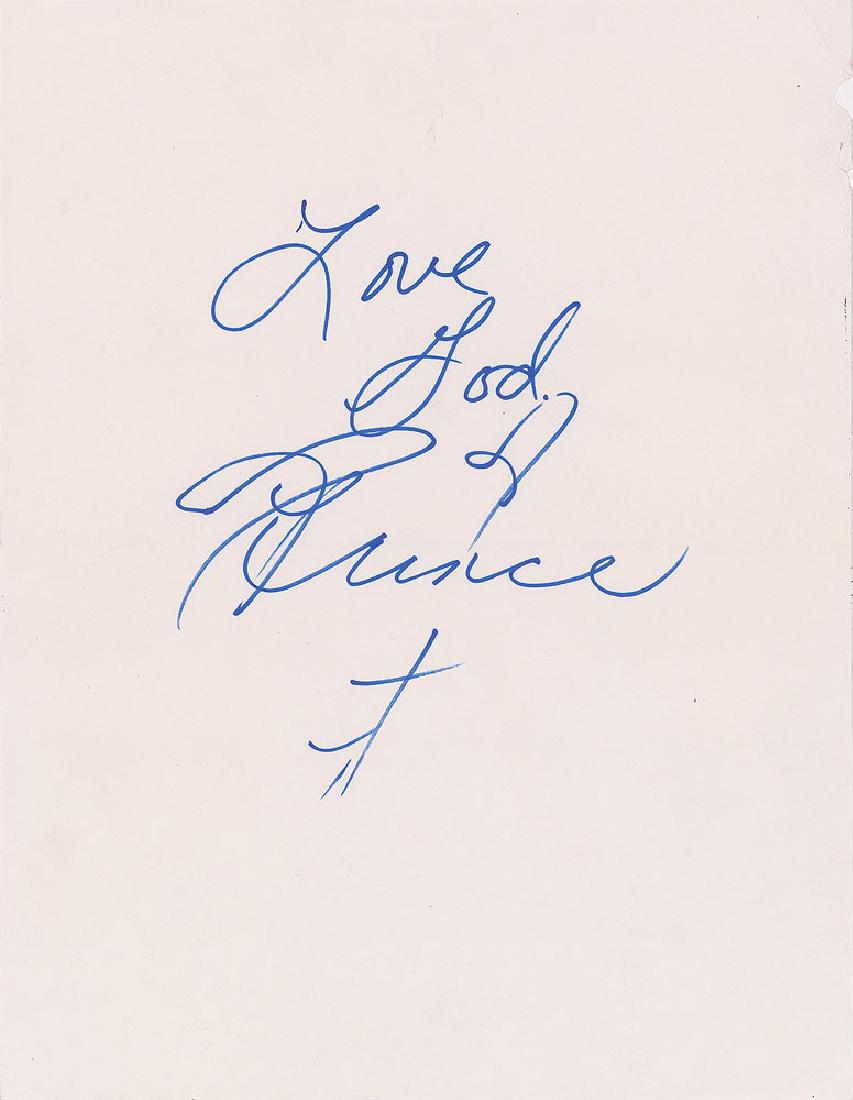 Love
God.
Prince